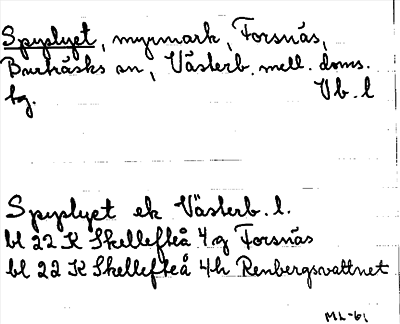 Spyplyet, myrmark, Forsnäs,
Burträsks sn, Västerb. mell. doms.
bg. Vb. l
Spyplyet ek Västerb. l.
bl 22 K Skellefteå 4g Forsnäs
bl 22 K Skellefteå 4h Renbergsvattnet
ML-61